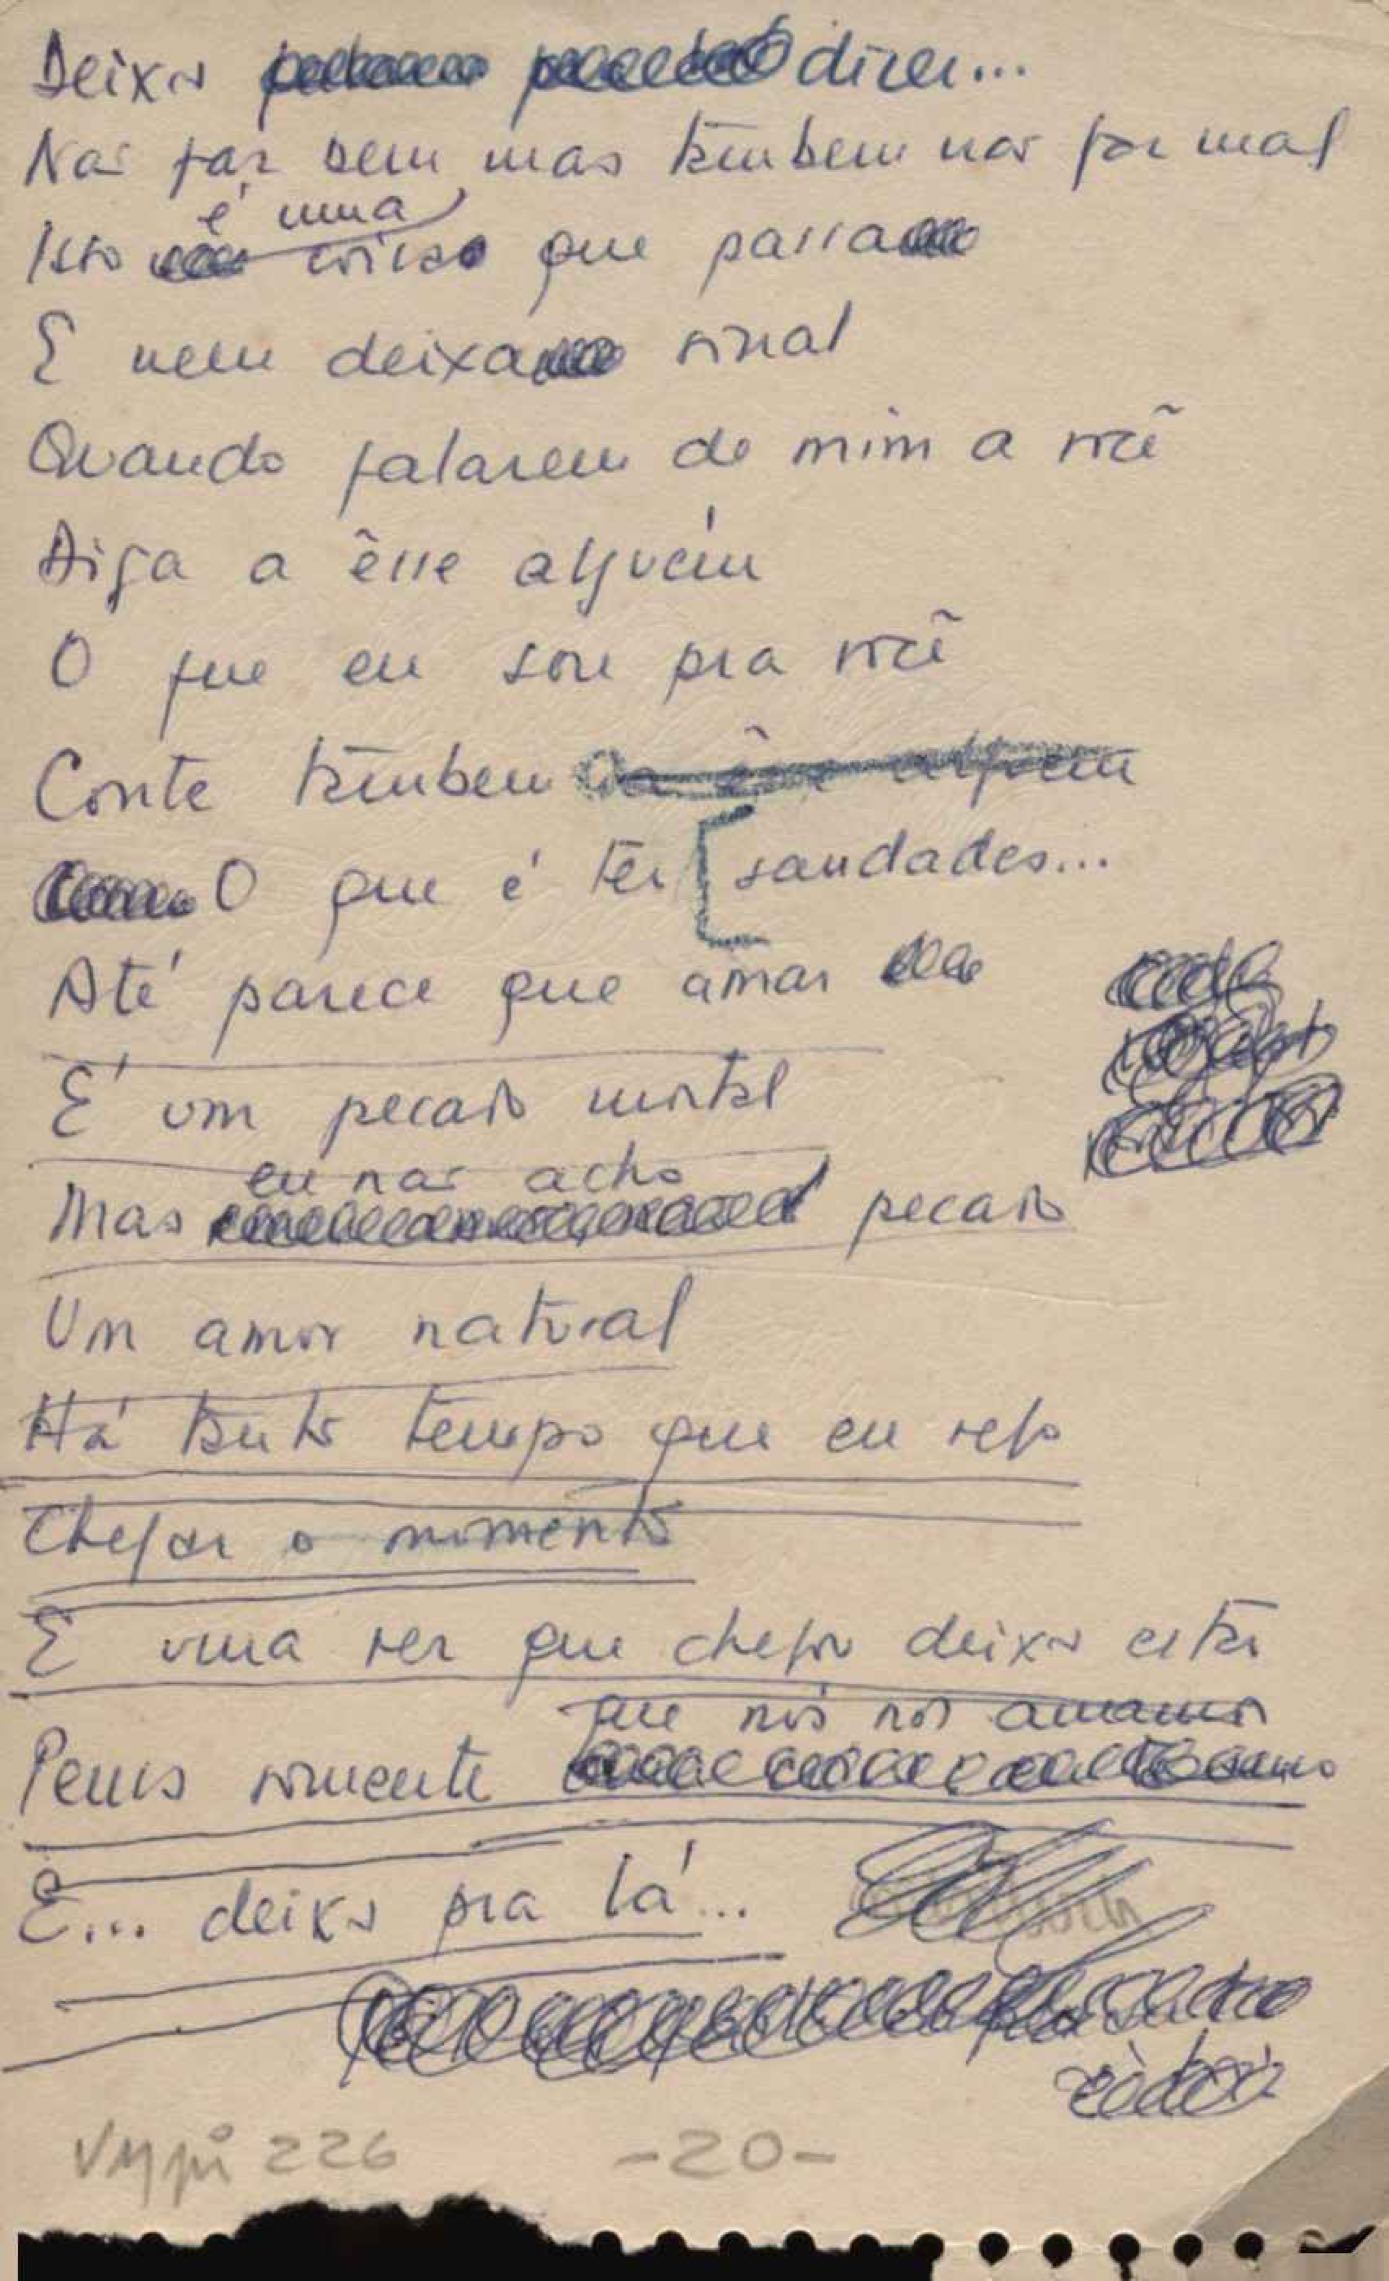 Deixa dizer...
Não faz bem mas também não faz mal
Isso é uma coisa que passa
E nem deixa sinal
Quando falarem de mim a você
Diga a êsse alguém
O que eu sou pra você
Conte também a êsse alguém
O que é ter [saudades...
Até parece que amar
É um pecado mortal
Mas eu não acho pecado
Um amor natural
Há tanto tempo que eu rogo
Chegar o momento
E uma vez que chegou deixa estar
Pensa somente que nós nos amamos
E... deixa pra lá...
Vmpi 226 -20-